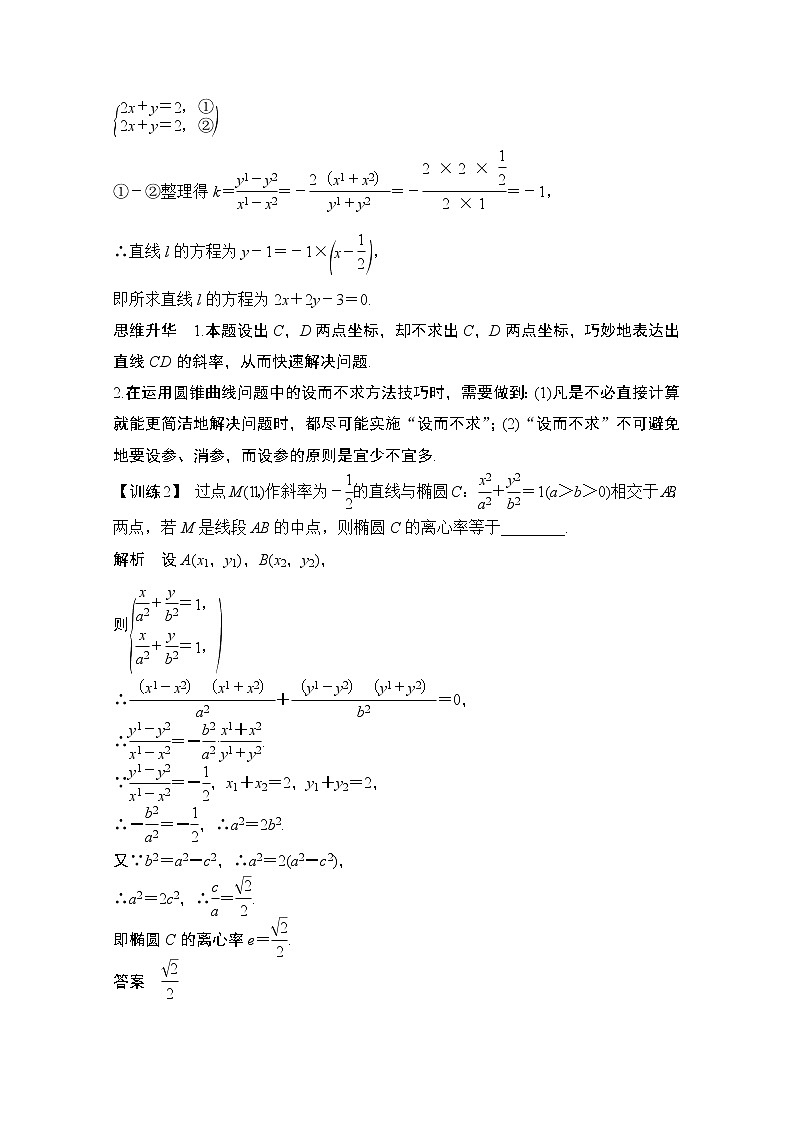 {2x+y=2,①
2x+y=2,②)
①-②整理得 k=\frac{y1-y2}{x1-x2}=-\frac{2（x1+x2）}{y1+y2}=-\frac{2×2×\frac{1}{2}}{2×1}=-1,
∴直线 l 的方程为 y-1=-1×(x-\frac{1}{2}),
即所求直线 l 的方程为 2x+2y-3=0.
思维升华　1.本题设出 C，D 两点坐标，却不求出 C，D 两点坐标，巧妙地表达出
直线 CD 的斜率，从而快速解决问题.
2.在运用圆锥曲线问题中的设而不求方法技巧时，需要做到：(1)凡是不必直接计算
就能更简洁地解决问题时，都尽可能实施“设而不求”；(2)“设而不求”不可避免
地要设参、消参，而设参的原则是宜少不宜多.
【训练2】 过点 M(1,1)作斜率为-\frac{1}{2}的直线与椭圆 C：\frac{x2}{a2}+\frac{y2}{b2}=1(a＞b＞0)相交于 A,B
两点，若 M 是线段 AB 的中点，则椭圆 C 的离心率等于________.
解析　设 A(x₁，y₁)，B(x₂，y₂)，
则{\frac{x}{a2}+\frac{y}{b2}=1,
\frac{x}{a2}+\frac{y}{b2}=1,)
∴\frac{（x1-x2）（x1+x2）}{a2}+\frac{（y1-y2）（y1+y2）}{b2}=0,
∴\frac{y1-y2}{x1-x2}=-\frac{b2}{a2}·\frac{x1+x2}{y1+y2}.
∵\frac{y1-y2}{x1-x2}=-\frac{1}{2}，x₁+x₂=2，y₁+y₂=2，
∴-\frac{b2}{a2}=-\frac{1}{2}，∴a²=2b².
又∵b²=a²-c²，∴a²=2(a²-c²)，
∴a²=2c²，∴\frac{c}{a}=\frac{√2}{2}.
即椭圆 C 的离心率 e=\frac{√2}{2}.
答案　\frac{√2}{2}